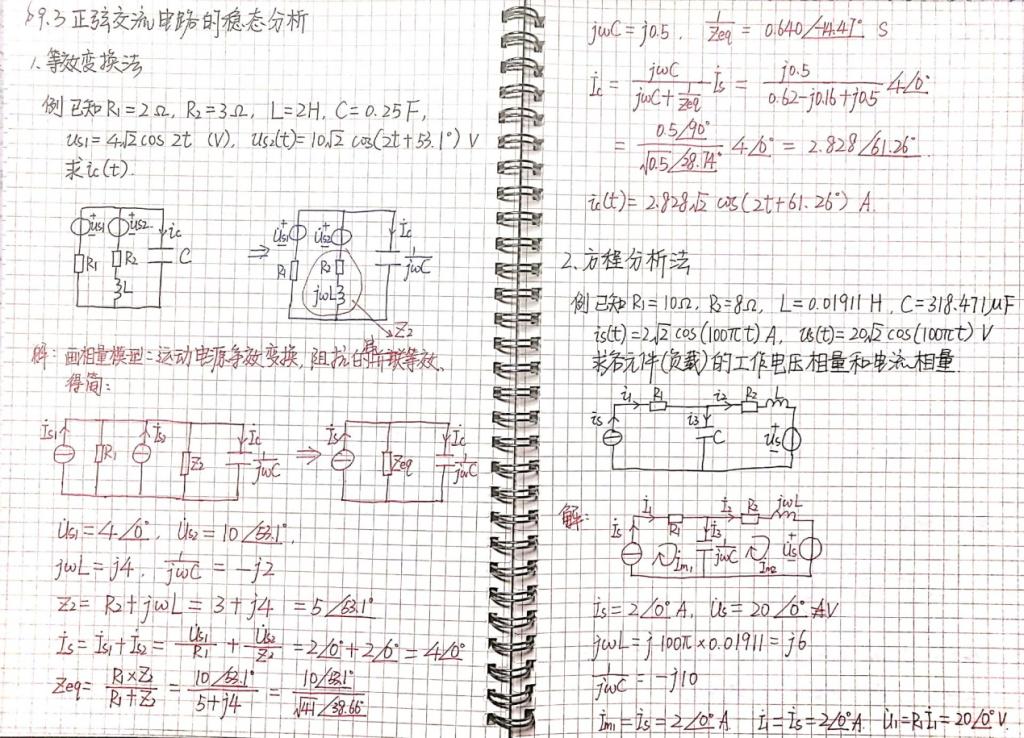 §9.3 正弦交流电路的稳态分析
1. 等效变换法
例 已知 R₁=2Ω, R₂=3Ω, L=2H, C=0.25F,
us1=4√2cos 2t (V), us2(t)=10√2 cos(2t+53.1°) V
求 ic(t).
+ us1 + us2 ic
R₁ R₂ C
L
⇒
U̇s1 + U̇s2 + İc
R₁ R₂ 1/jωC
jωL
Z₂
解: 画相量模型: 运动电源等效变换, 阻抗的串联等效,
得简:
İs1 R₁ İs2 Z₂ İc 1/jωC
⇒
İs Zeq İc 1/jωC
U̇s1=4∠0°, U̇s2=10∠53.1°,
jωL=j4, 1/jωC=-j2
Z₂=R₂+jωL=3+j4=5∠53.1°
İs=İs1+İs2=U̇s1/R₁+U̇s2/Z₂=2∠0°+2∠0°=4∠0°
Zeq=R₁×Z₂/R₁+Z₂=10∠53.1°/5+j4=10∠53.1°/√41∠38.66°
jωC=j0.5, 1/Zeq=0.640∠-14.47° S
İc=jωC/jωC+1/Zeq İs=j0.5/0.62-j0.16+j0.5 4∠0°
=0.5∠90°/√0.5∠28.74° 4∠0°=2.828∠61.26°.
ic(t)=2.828√2 cos(2t+61.26°) A.
2. 方程分析法
例 已知 R₁=10Ω, R₂=8Ω, L=0.01911 H, C=318.471μF
is(t)=2√2cos(100πt) A, us(t)=20√2cos(100πt) V
求各元件(负载)的工作电压相量和电流相量.
i₁ R₁ i₂ R₂ L
is i₃ C us +
解:
İ₁ R₁ İ₂ R₂ jωL
İs İm1 İ₃ 1/jωC İm2 U̇s +
İs=2∠0° A, U̇s=20∠0° V
jωL=j100π×0.01911=j6
1/jωC=-j10
İm1=İs=2∠0° A. İ₁=İs=2∠0° A. U̇₁=R₁İ₁=20∠0° V.